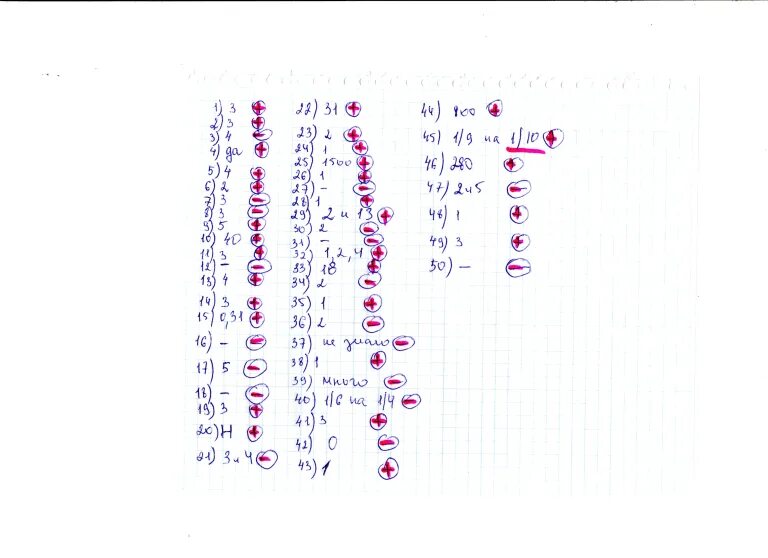 1) 3 +
2) 3 +
3) 4 -
4) да +
5) 4 +
6) 2 +
7) 3 -
8) 3 -
9) 5 +
10) 40 +
11) 3 +
12) - -
13) 4 +
14) 3 +
15) 0,31 +
16) - -
17) 5 -
18) - -
19) 3 +
20) Н +
21) 3 и 4 -
22) 31 +
23) 2 +
24) 1 +
25) 1500 +
26) 1 +
27) - -
28) 1 +
29) 2 и 13 +
30) 2 -
31) - -
32) 1, 2, 4 +
33) 18 +
34) 2 -
35) 1 +
36) 2 -
37) не знаю -
38) 1 +
39) много -
40) 1/6 на 1/4 -
41) 3 +
42) 0 -
43) 1 +
44) +
45) 1/9 на 1/10 +
46) 280 +
47) 2 и 5 -
48) 1 +
49) 3 +
50) - -